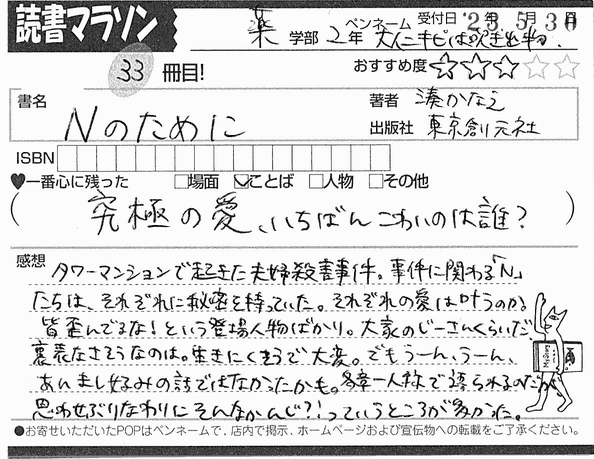 読書マラソン
薬 学部 2年 ペンネーム 大人ニキビは吹き出物. 受付日 '23年 5月 30日
33 冊目!
おすすめ度 ★★★☆☆
書名 Nのために
著者 湊かなえ
出版社 東京創元社
ISBN
♥一番心に残った □場面 ☑ことば □人物 □その他
(究極の愛、いちばんこわいのは誰?)
感想
タワーマンションで起きた夫婦殺害事件。事件に関わる「N」
たちは、それぞれに秘密を持っていた。それぞれの愛は叶うのか。
皆歪んでるな!という登場人物ばかり。大家のじーさんくらいだ
裏表なさそうなのは。生きにくそうで大変。でもうーん、うーん、
あんまし好みの話ではなかったかも。各章一人称で語られるのだが
思わせぶりなわりにそんなかんじ?!っていうところが多かった。
●お寄せいただいたPOPはペンネームで、店内で掲示、ホームページおよび宣伝物への転載をご了承ください。